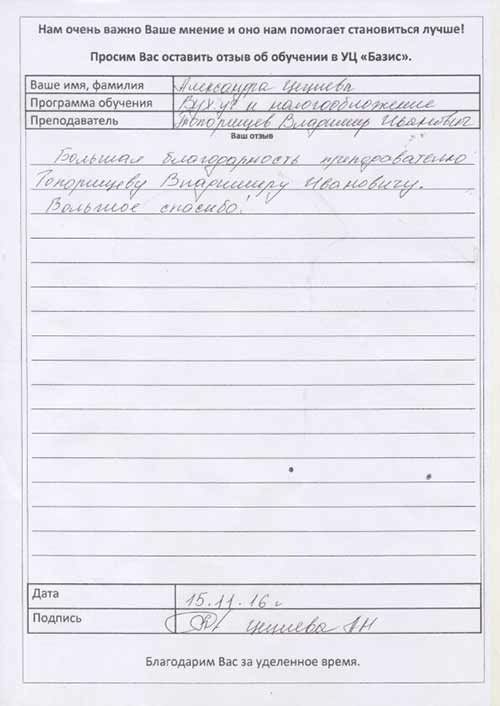 Нам очень важно Ваше мнение и оно нам помогает становиться лучше!
Просим Вас оставить отзыв об обучении в УЦ «Базис».
Ваше имя, фамилия Александра Цециева
Программа обучения Бух.уч и налогообложение
Преподаватель Топорищев Владимир Иванович
Ваш отзыв
Большая благодарность преподавателю
Топорищеву Владимиру Ивановичу.
Большое спасибо!
Дата 15.11.16 г
Подпись Цециева АН
Благодарим Вас за уделенное время.